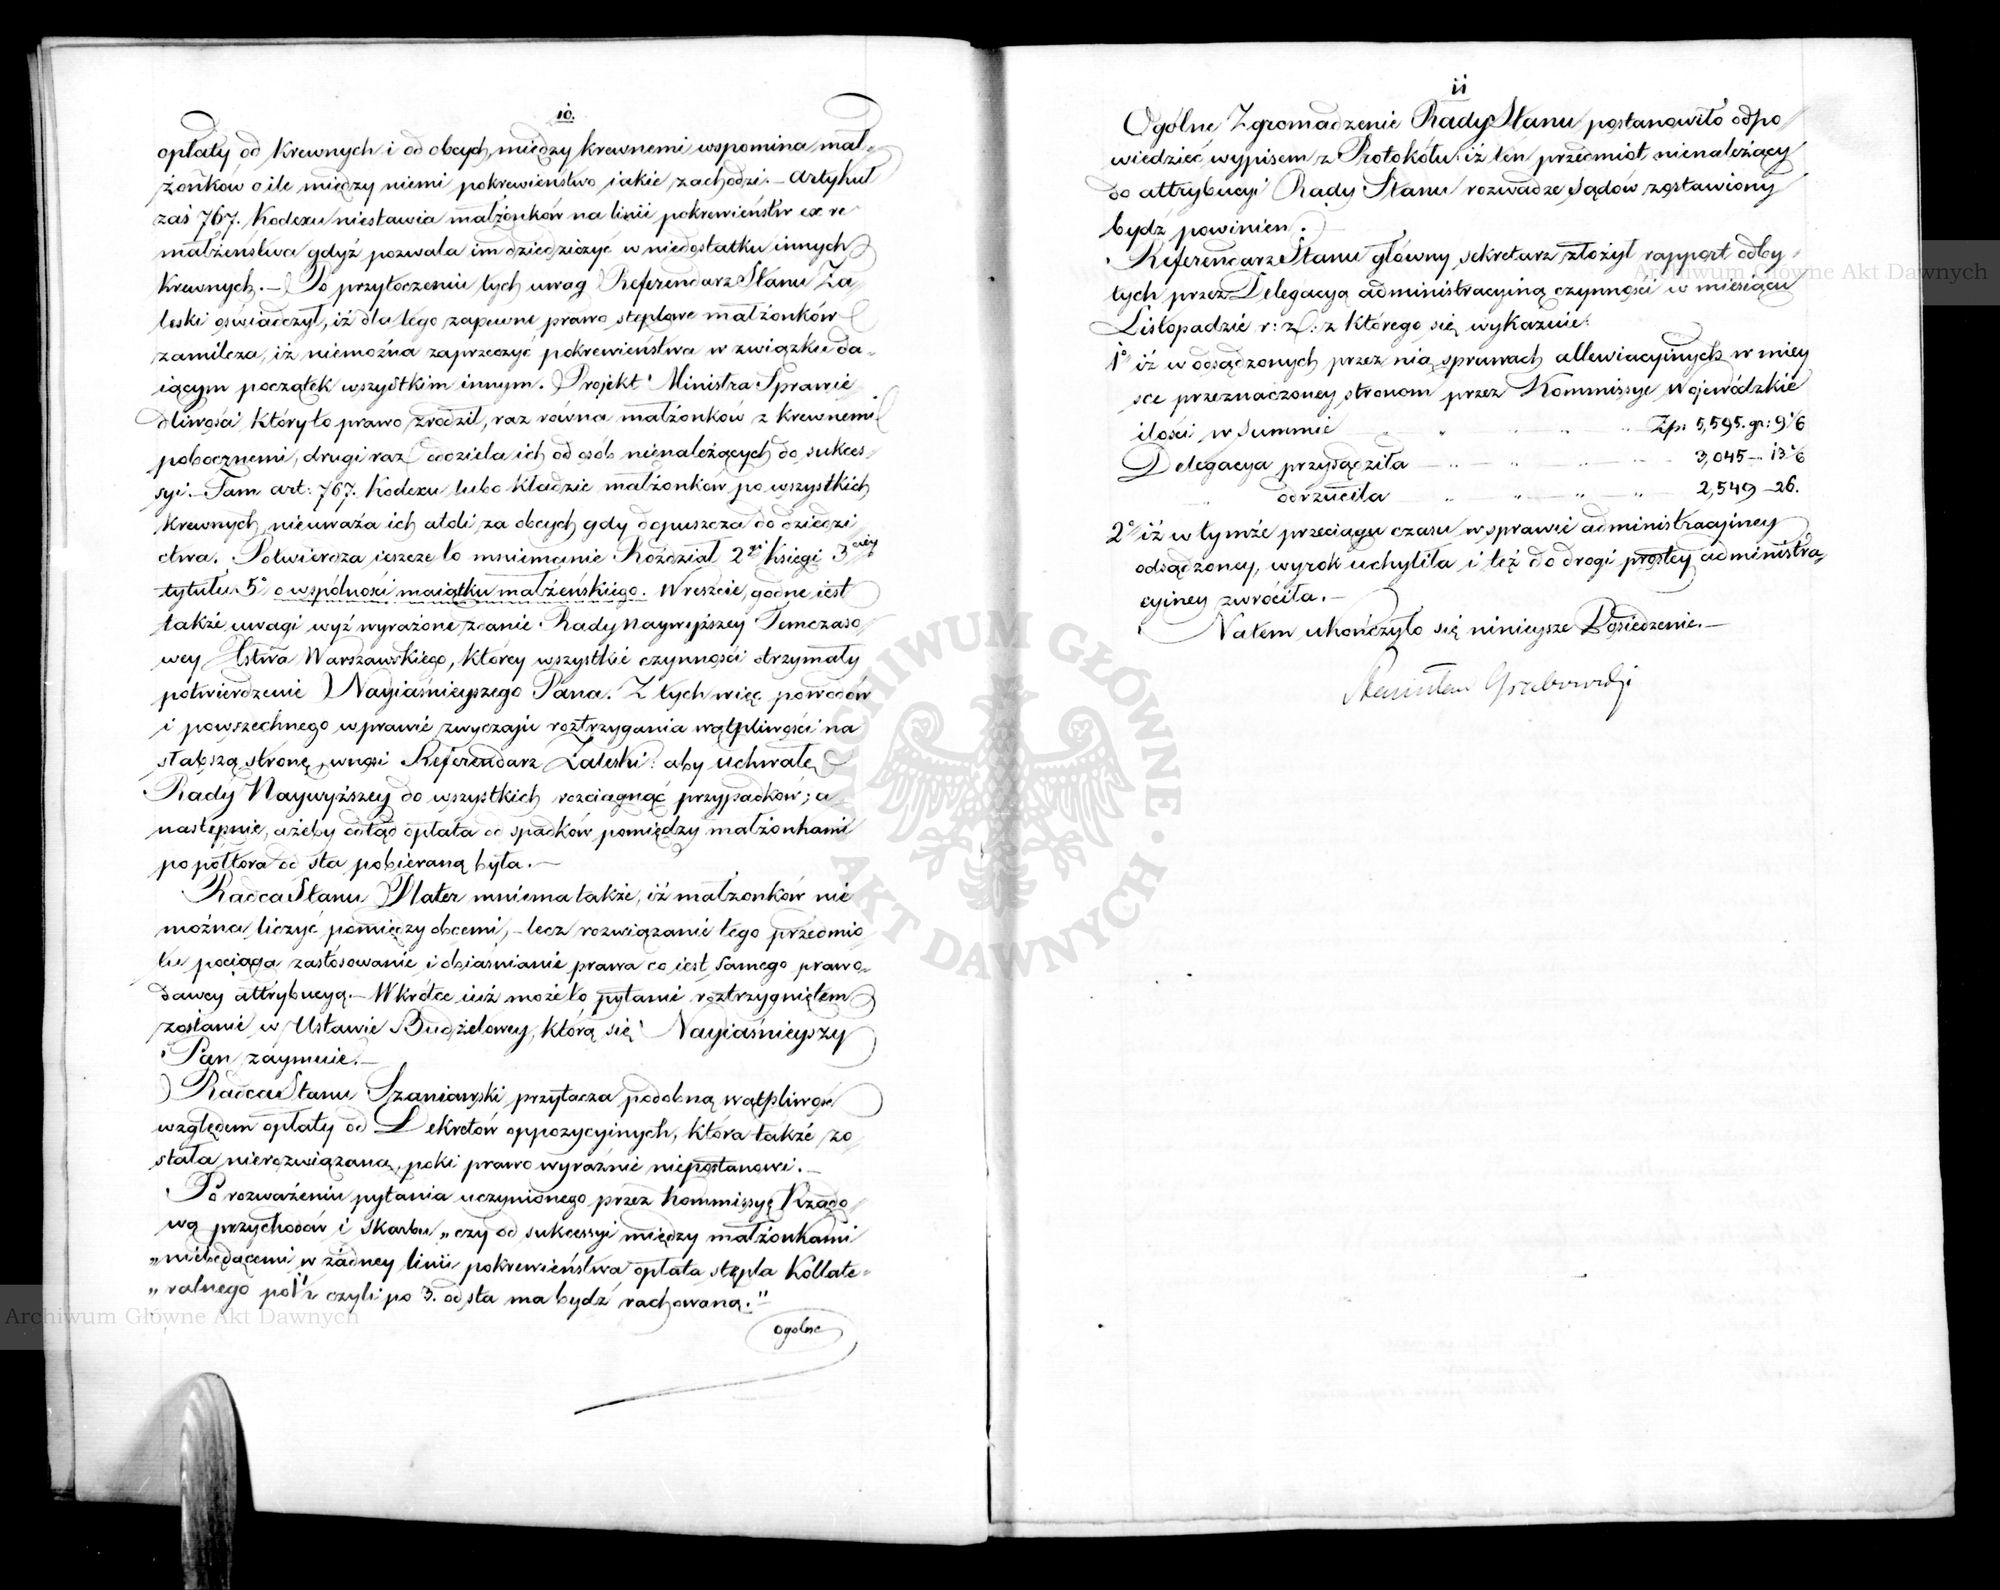 10.
opłaty od krewnych i od obcych, między krewnemi wspomina mał-
żonków o ile między niemi pokrewieństwo iakie zachodzi. – Artykuł
zaś 767. Kodexu niestawia małżonków na linii pokrewieństw ex re
małżeństwa gdyż pozwala im dziedziczyć w niedostatku innych
krewnych. – Po przytoczeniu tych uwag Referendarz Stanu Za-
leski oświadczył, iż dla tego zapewne prawo stęplowe małżonków
zamilcza, iż niemożna zaprzeczyć pokrewieństwa w związku da-
iącym początek wszystkim innym. Projekt Ministra Sprawie
dliwości który to prawo zrodził, raz równa małżonków z krewnemi
pobocznemi, drugi raz oddziela ich od osób nienależących do sukces-
syi. – Tam art: 767. Kodexu lubo kładzie małżonków po wszystkich
krewnych, nieuważa ich atoli za obcych gdy dopuszcza do dziedzi
ctwa. Potwierdza ieszcze to mniemanie Rozdział 2gi Księgi 3ciey
tytułu 5o o wspólności maiątku małżeńskiego. Wreszcie, godne iest
także uwagi wyż wyrażone zdanie Rady Naywyższey Tymczaso
wey Xstwa Warszawskiego, którey wszystkie czynności otrzymały
potwierdzenie Nayiaśnieyszego Pana. Z tych więc powodów
i powszechnego w prawie zwyczaju roztrzygania wątpliwości na
słabszą stronę, wnosi Referendarz Zaleski: aby uchwałę
Rady Naywyższey do wszystkich rozciągnąć przypadków; a
następnie, ażeby odtąd opłata od spadków pomiędzy małżonkami
po półtora od sta pobieraną była. –
Radca Stanu Plater mniema także, iż małżonków nie
można liczyć pomiędzy obcemi, – lecz rozwiązanie tego przedmio
tu pociąga zastosowanie i obiaśnianie prawa co iest samego prawo-
dawcy attrybucyą. – Wkrótce iuż może to pytanie roztrzygniętem
zostanie w Ustawie Budżetowey, którą się Nayiaśnieyszy
Pan zaymuie. –
Radca Stanu Szaniawski przytacza podobną wątpliwość
względem opłaty od Dekretów oppozycyinych, która także zo
stała nierozwiązana, póki prawo wyraźnie niepostanowi. –
Po rozważeniu pytania uczynionego przez Kommissyę Rządo
wą przychodów i Skarbu „czy od sukcessyi między małżonkami
„niebędącemi w żadney linii pokrewieństwa opłata stępla Kollate-
„ralnego po 1½ czyli po 3. od sta ma bydź rachowaną."
Ogólne
11
Ogólne Zgromadzenie Rady Stanu postanowiło odpo
wiedzieć wypisem z Protokółu: iż ten przedmiot nienależący
do attrybucyi Rady Stanu rozwadze Sądów zostawiony
bydź powinien.
Referendarz Stanu główny sekretarz złożył rapport odby-
tych przez Delegacyą administracyiną czynności w miesiącu
Listopadzie r: z: z którego się wykazuie:
1o iż w odsądzonych przez nią sprawach allewiacyinych w miey
sce przeznaczoney stronom przez Kommissye Wojewódzkie
ilości w Summie Zp: 5,595. gr: 9 1/6
Delegacya przysądziła 3,045 – 13 1/6
odrzuciła 2,549 – 26.
2o iż w tymże przeciągu czasu w sprawie administracyiney
odsądzoney, wyrok uchyliła i też do drogi prostey administra
cyiney zwróciła. –
Natem ukończyło się ninieysze Posiedzenie. –
Stanisław Grabowski
Archiwum Główne Akt Dawnych
Archiwum Główne Akt Dawnych
ARCHIWUM GŁÓWNE AKT DAWNYCH